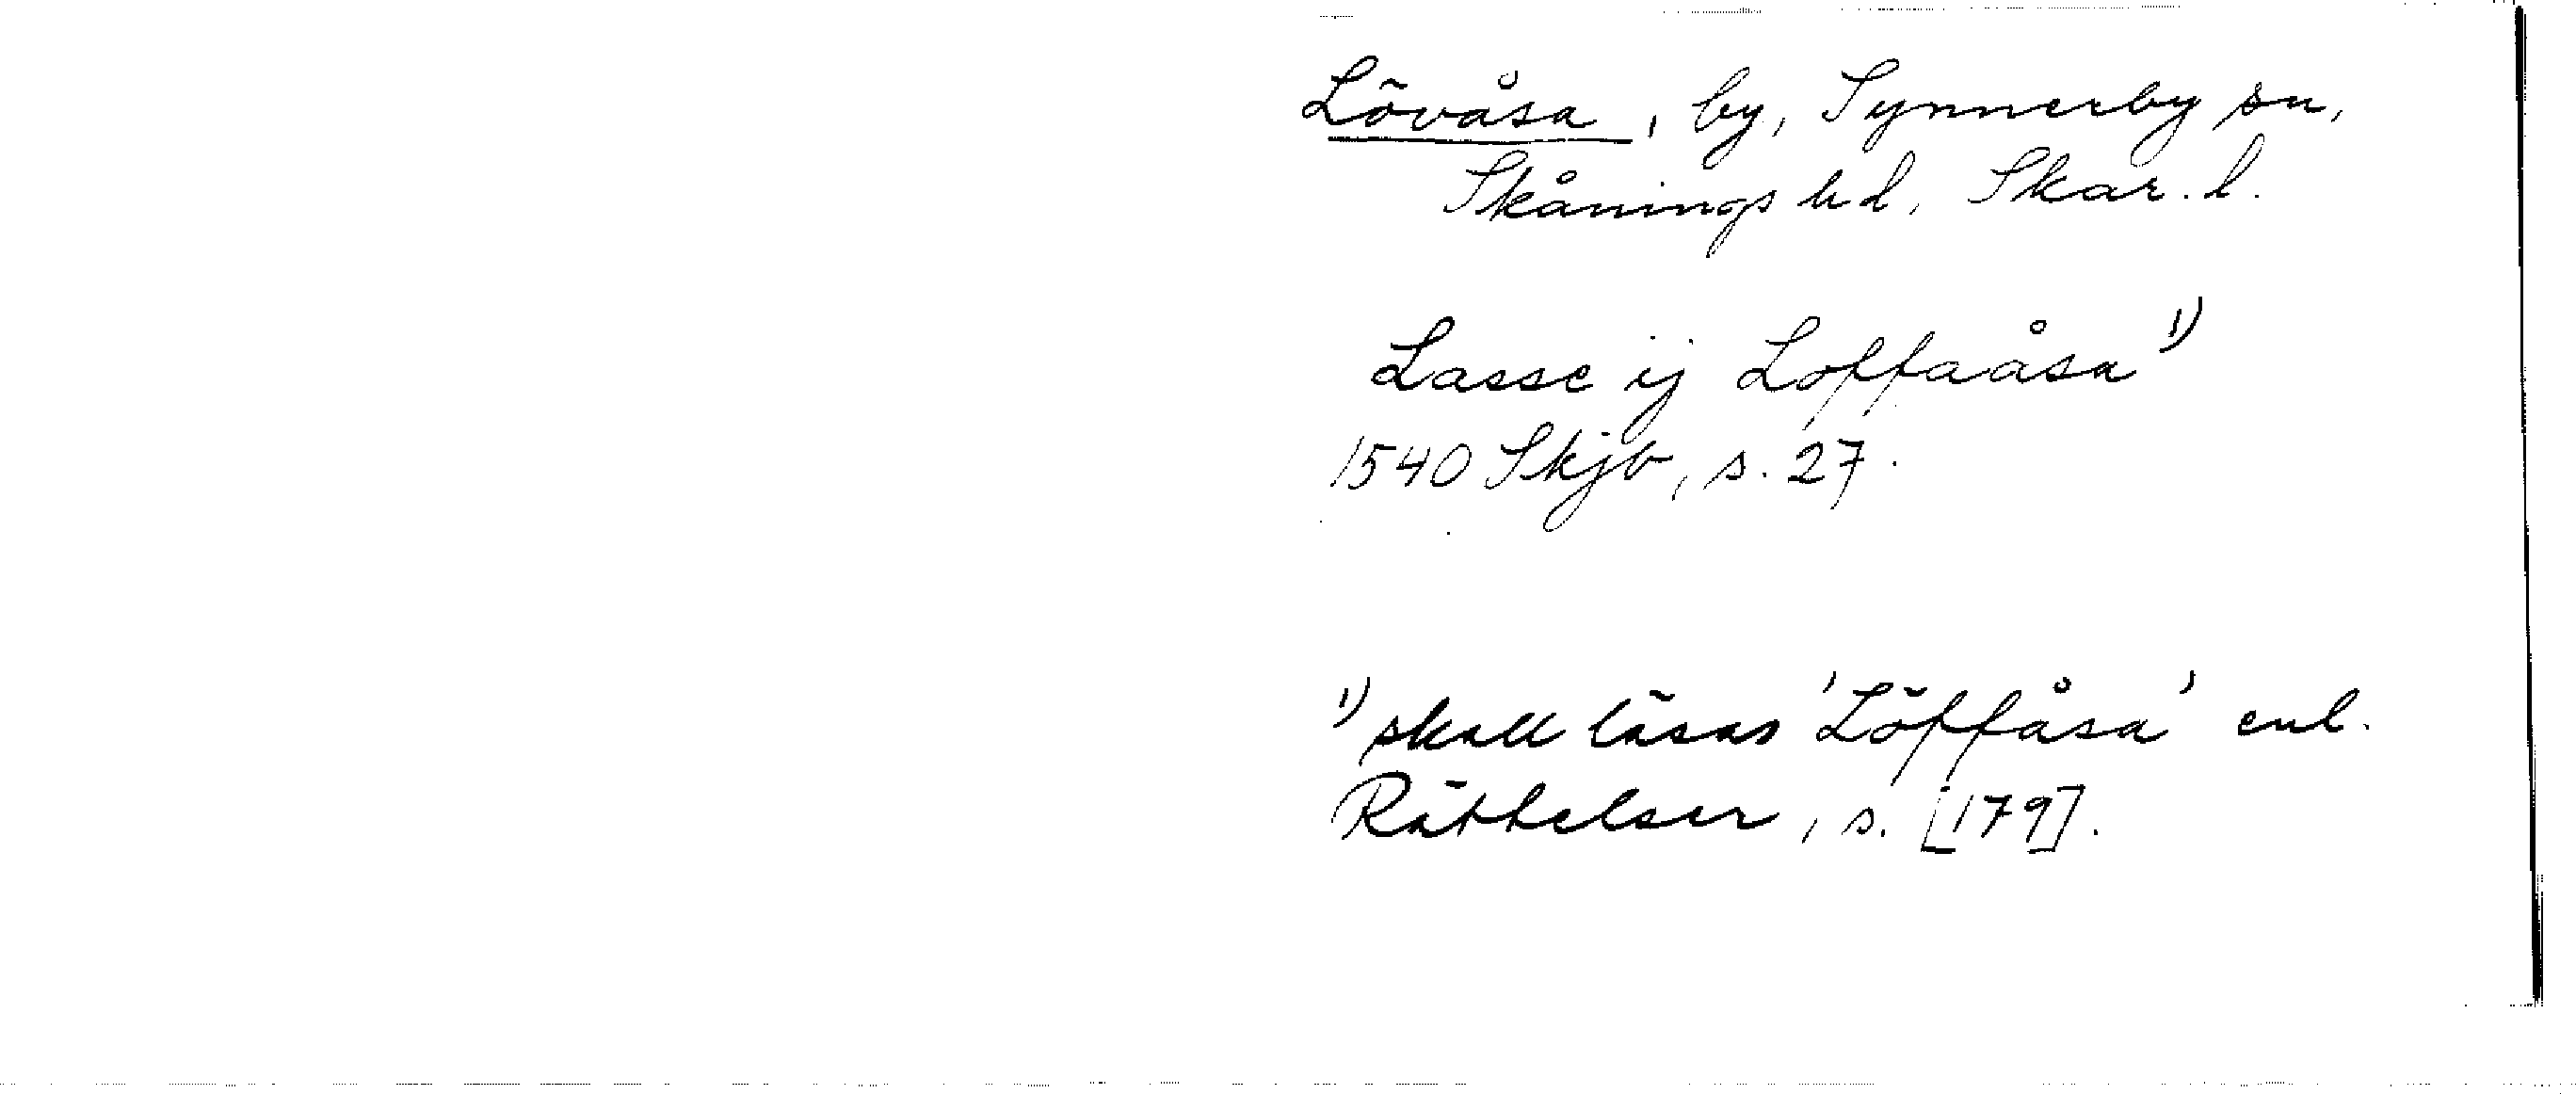 Lövåsa, by, Synnerby sn,
Skånings hd, Skar. l.
Lasse ij Loffaåsa 1)
1540 Skjb, s. 27.
1) skall läsas 'Löffåsa' enl.
Rättelser, s. [179].